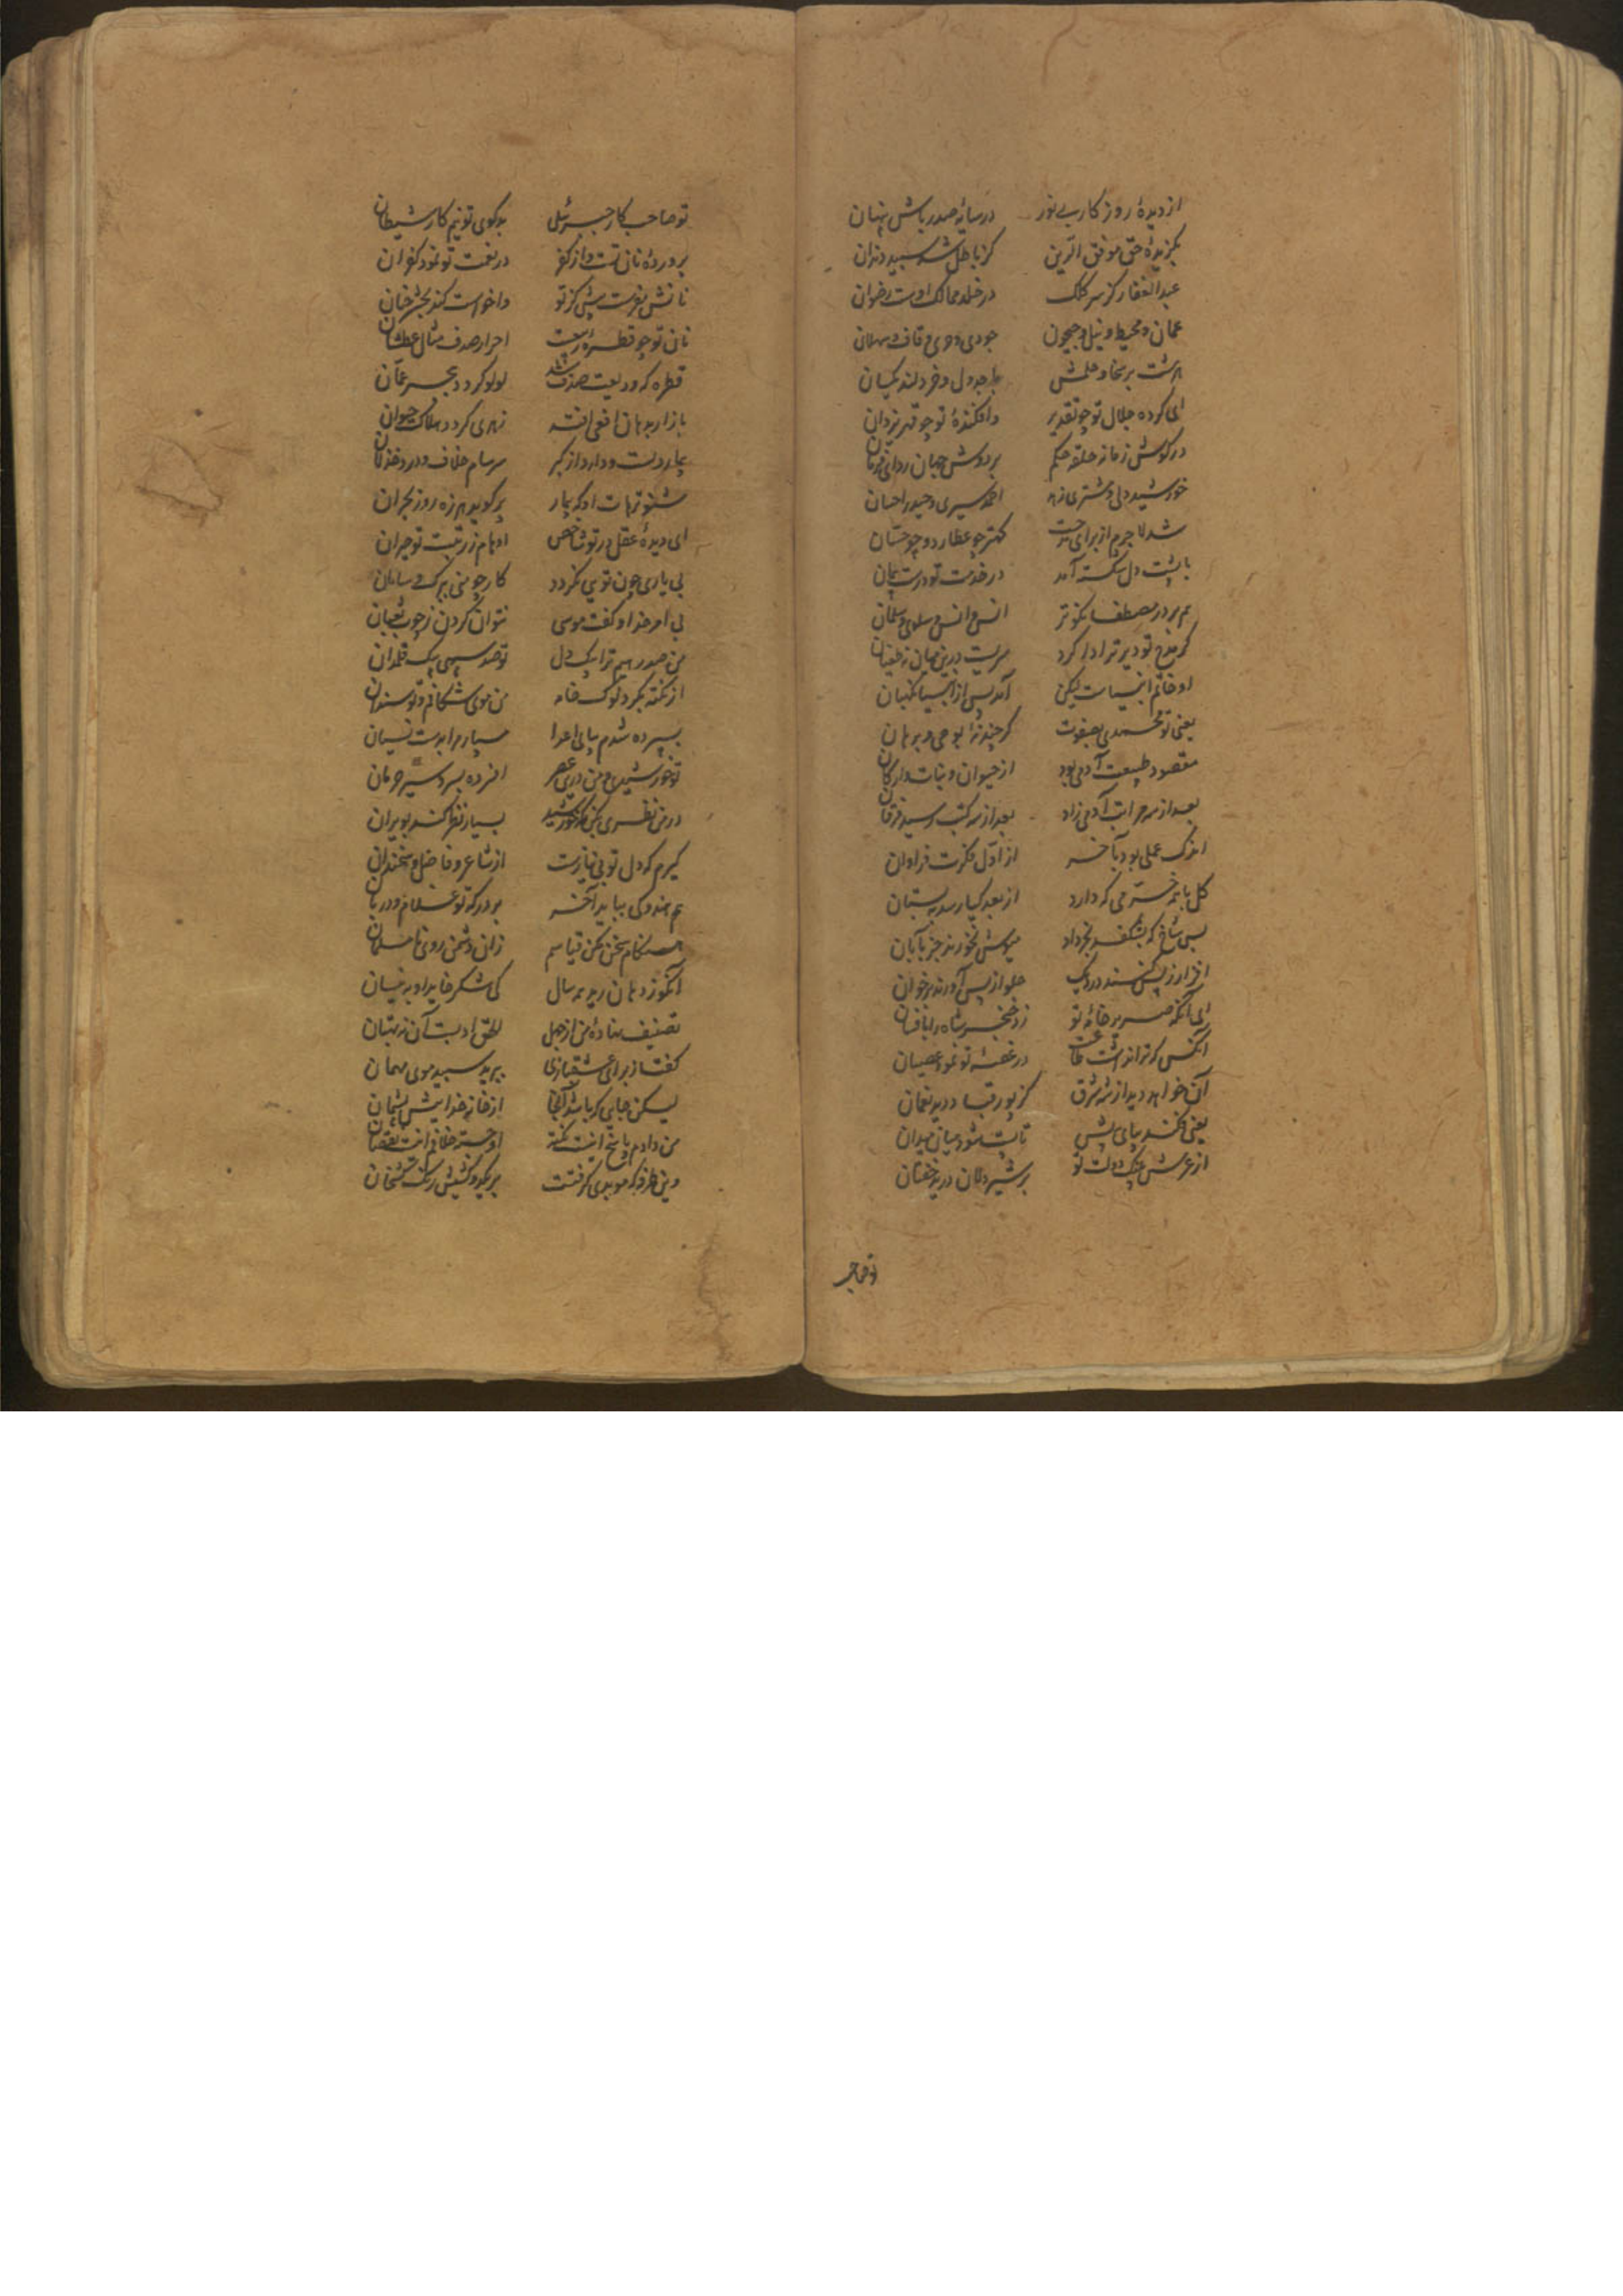 از دیدهٔ روزکار بی نور در سایهٔ صدر باش پنهان
بکزیدهٔ حق موفق الدین کز باطل شد سپید دندان
عبدالغفار کز سر کلک در خلد ممالک اوست رضوان
عمان و محیط و نیل و جیحون جودی و حری و قاف و ثهلان
هرشت بر سخا و حلمش جدول و خردلند یکسان
ای کرده جلال تو چو تقدیر
در کوش زمانه حلقهٔ حکم بر دوش جهان ردای فرمان
خورشید دلی و مشتری زهد احمد سیری و حیدر احسان
شد لاجرم از برای مدحت کهتر چو عطارد و چو حسان
با پشت دل شکسته آمد در خدمت تو درست پیمان
هم بر در مصطفا نکوتر انس و انس و سلوی و سلمان
کر مدح تو دیرتر ادا کرد سریست درین میان نه طغیان
او خاتم انبیاست لیکن آمد پس از انبیا کیهان
یعنی تو محمدی بصفوت کرچند نهٔ بوحی و برهان
مقصود طبیعت آدمی بود از حیوان و نبات و ارکان
بعد از سه مراتب آدمی زاد بعد از سه کتب رسید فرقان
اندک عملی بود بآخر از اول فکرت فراوان
کل با همه خرمی که دارد از بعد کیا رسد ببستان
بس شاخ که بشکفد بخرداد میوش نخورند جز بآبان
افزار ز پس کنند در دیک حلوا ز پس آورند بر خوان
ای آنکه صریر خامهٔ تو زد خنجر شاه را بافسان
آنکس که ترا نداشت طاعت در غصهٔ تو نمود عصیان
آن خواهد دید از شه شرق کز پور قباد دید نعمان
یعنی فکند بپای پیلش تا پست شود میان میدان
از عرس دولت تو بر شیردلان درید خفتان
تو صاحب
تو صاحب کار جبرئیلی بدکوی تو نیم کار شیطان
پروردهٔ نان تست و از کفر در نعمت تو نمود کفران
نانش مفرست پیش کز تو واخواست کند بحشر حنان
نان تو چو قطرهٔ ربیعست احرار صدف مثال عطشان
قطره که ودیعت صدف شد لولو کردد ببحر عمان
باز ار بدهان افعی افتد زهری کردد هلاک حیوان
بیمار دلست و دارد از کبر سرسام خلاف و درد خذلان
مشنو ترهات او که بیمار پر کوید هرزه روز بحران
ای دیدهٔ عقل در تو شاخص اوهام ز رتبت تو حیران
بی یاری چون تویی نکردد کار چو منی ببرک و سامان
بی امر خدا و کف موسی نتوان کردن ز چوب ثعبان
من صدرهم ترا بیک دل تو صد سپهی بیک قلمدان
از نکتهٔ بکر و نوک خامه من موی شکافم و تو سندان
بسپرده شدم بپای اعدا مسپار مرا بدست نسیان
تو خورشیدی و من درین عصر افسرده بسردسیر حرمان
در من نظری بکن که خورشید بسیار نظر کند بویران
کیرم که دل تو بی نیازست از شاعر و فاضل و سخندان
هم هندوکی بباید آخر بر درکه تو غلام و دربان
هنکام سخن مکن قیاسم زان دشمن روی نامسلمان
آنکو ز دهان رید همه سال کی شکر خاید او بدنسان
تصنیف نهادهٔ من از جهل الحق او بست آن نه بهتان
کفتا ز برای عشقبازی ببرید سپید موی مهمان
لیکن جایی که باشد آنجا از خانه خدایش پشیمان
من دادم پاسخ اینت نکته او جسته خلافم اینت نقصان
وین طرفه که موبدی کرفتست